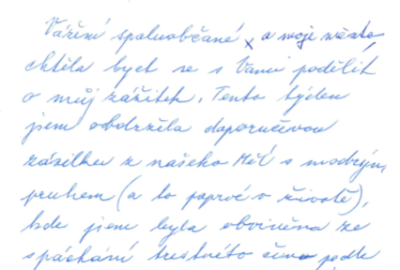 Vážení spoluobčané, a moje město,
chtěla bych se s Vami podělit
o můj zážitek. Tento týden
jsem obdržela doporučenou
zásilku z našeho MěÚ s modrým
pruhem (a to poprvé v životě),
kde jsem byla obviněna ze
spáchání trestného činu podle